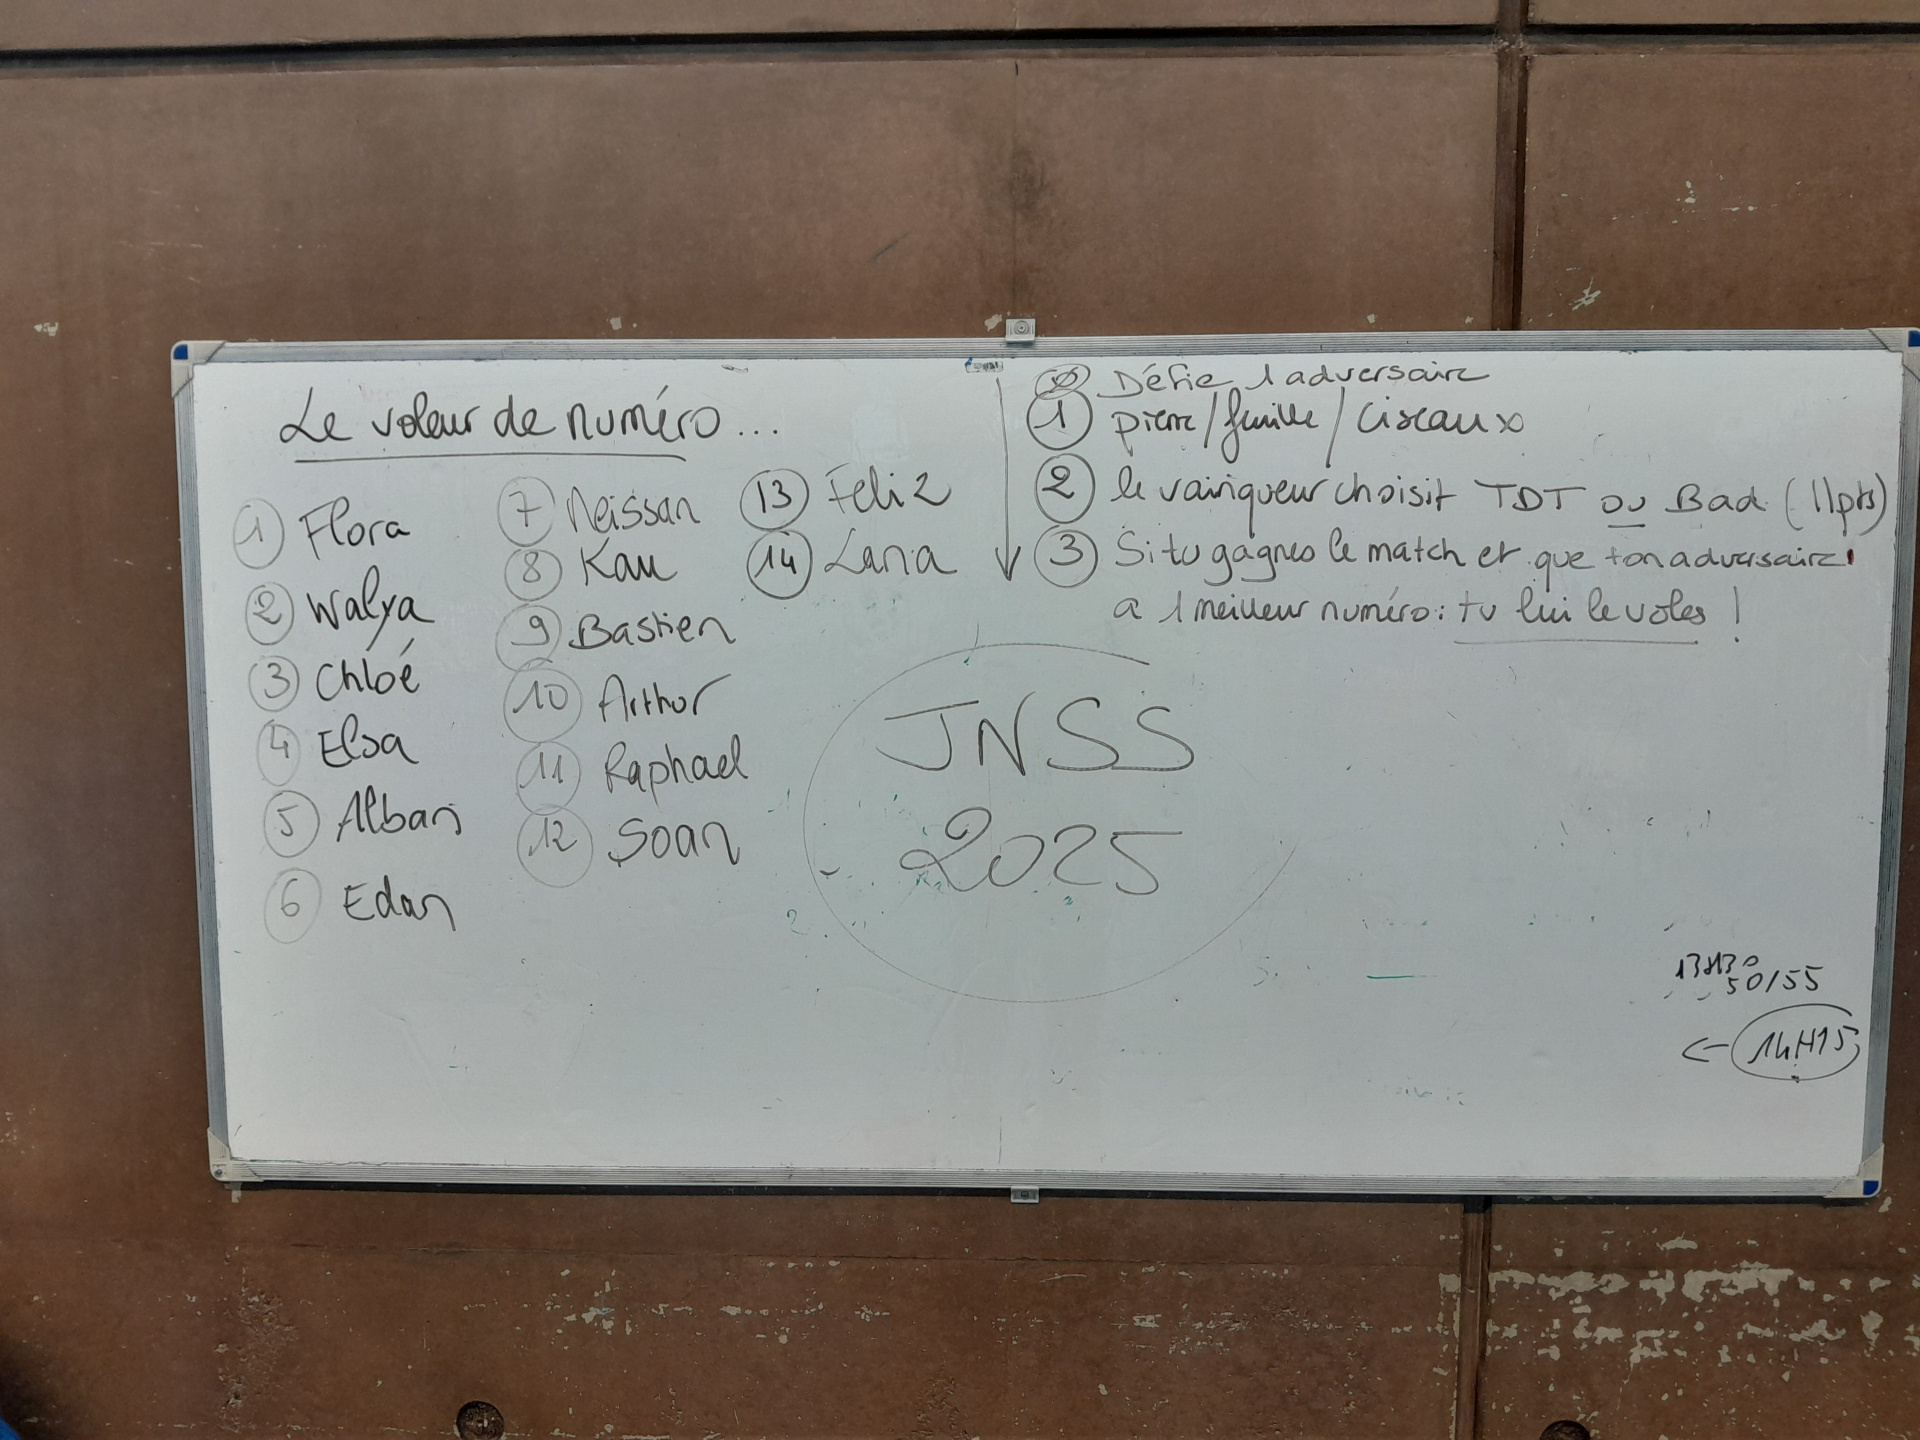 Le voleur de numéro...
1 Flora
2 Walya
3 Chloé
4 Elsa
5 Alban
6 Edan
7 Neissan
8 Kau
9 Bastien
10 Arthur
11 Raphael
12 Soan
13 Feliz
14 Lana
0 Défie 1 adversaire
1 pierre/feuille/ciseaux
2 le vainqueur choisit TDT ou Bad (11pts)
3 Si tu gagnes le match et que ton adversaire
a 1 meilleur numéro: tu lui le voles !
JNSS
2025
13H30
50/55
← 14H15